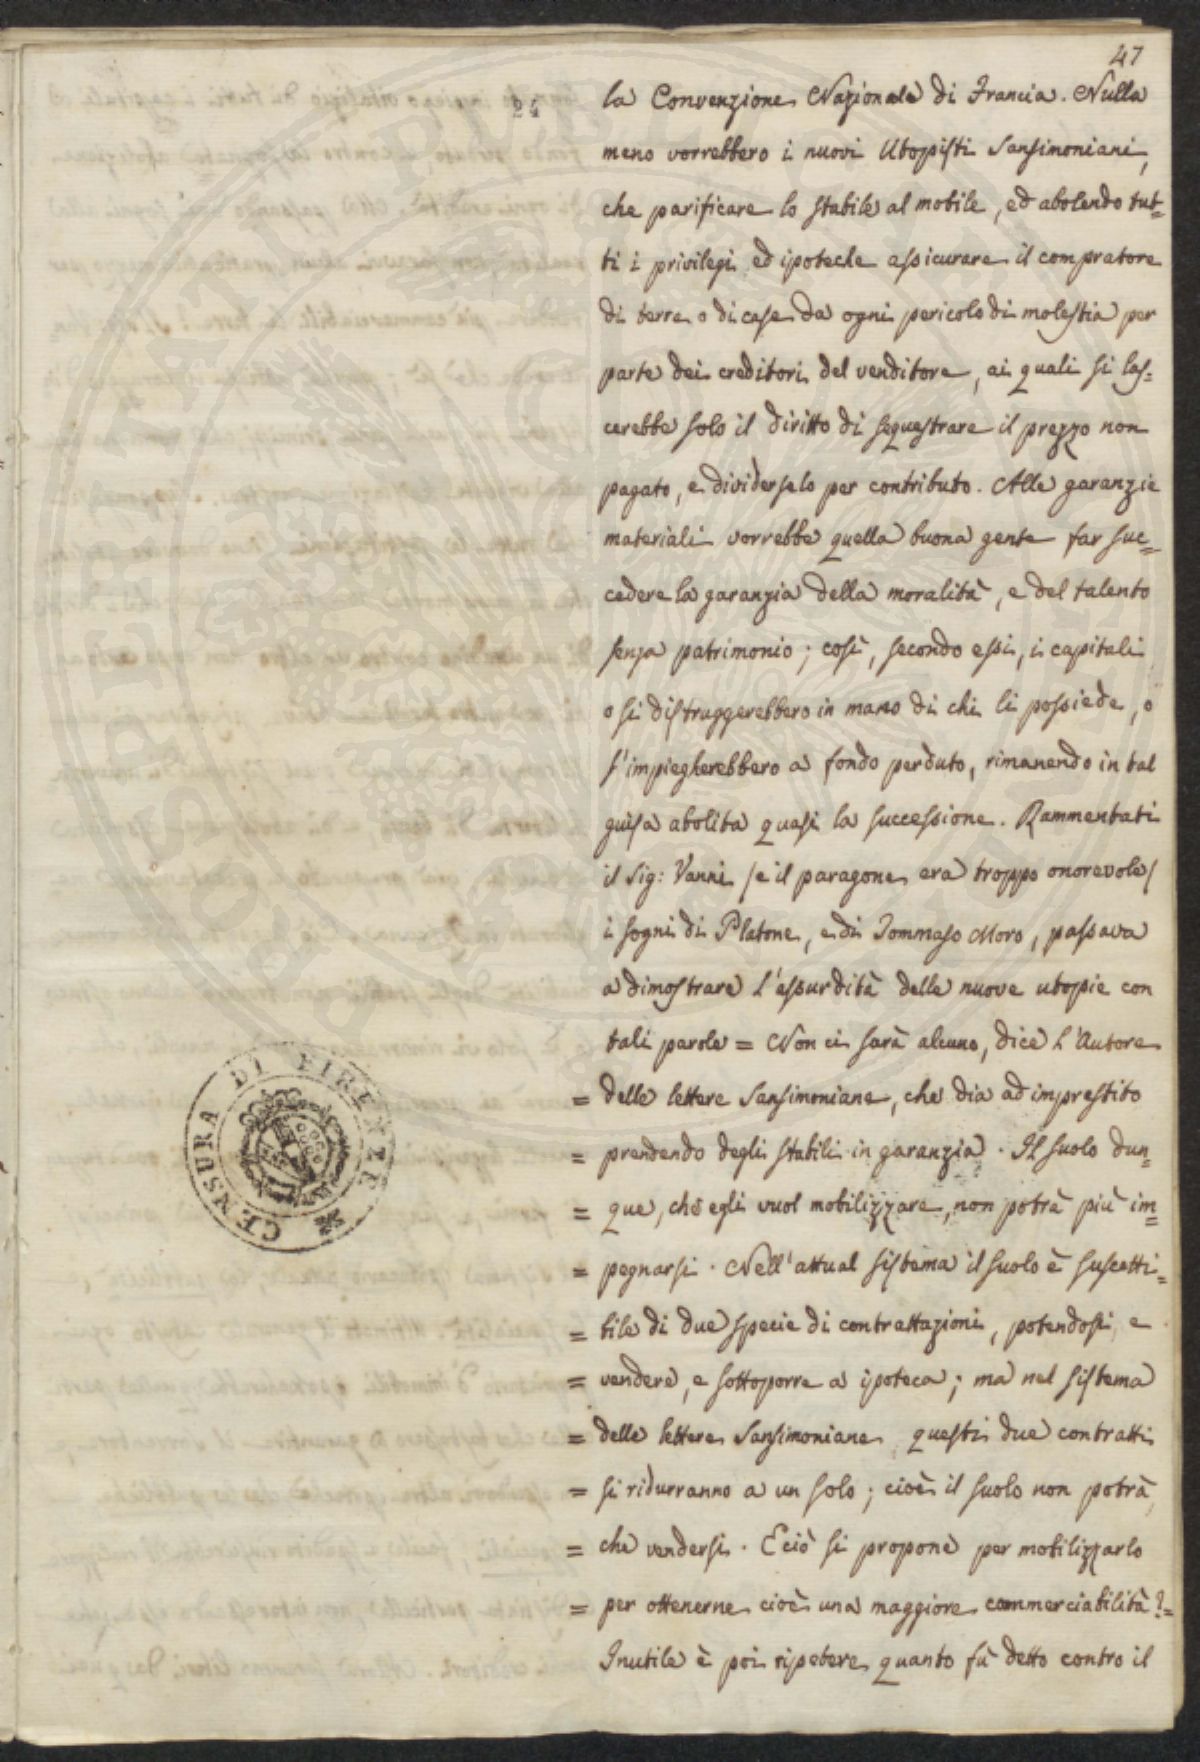 47
24
la Convenzione Nazionale di Francia. Nulla
meno vorrebbero i nuovi Utopisti Sansimoniani,
che parificare lo stabile al mobile, ed abolendo tut=
ti i privilegi ed ipoteche assicurare il compratore
di terre o di case da ogni pericolo di molestia per
parte dei creditori del venditore, ai quali si las=
cerebbe solo il diritto di sequestrare il prezzo non
pagato, e dividerselo per contributo. Alle garanzie
materiali vorrebbe quella buona gente far suc=
cedere la garanzia della moralità, e del talento
senza patrimonio; così, secondo essi, i capitali
o si distruggerebbero in mano di chi li possiede, o
s'impiegherebbero a fondo perduto, rimanendo in tal
guisa abolita quasi la successione. Rammentati
il Sig: Vanni /e il paragone era troppo onorevole/
i sogni di Platone, e di Tommaso Moro, passava
a dimostrare l'assurdità delle nuove utopie con
tali parole = Non ci sarà alcuno, dice l'Autore
= delle lettere Sansimoniane, che dia ad imprestito
= prendendo degli stabili in garanzia. Il suolo dun=
= que, che egli vuol mobilizzare, non potrà più im=
= pegnarsi. Nell'attual sistema il suolo è suscetti=
= bile di due specie di contrattazioni, potendosi, e
= vendere, e sottoporre a ipoteca; ma nel sistema
= delle lettere Sansimoniane questi due contratti
= si ridurranno a un solo; cioè il suolo non potrà
= che vendersi. E ciò si propone per mobilizzarlo
= per ottenerne cioè una maggiore commerciabilità?=
Inutile è poi ripetere quanto fù detto contro il
CENSURA DI FIRENZE